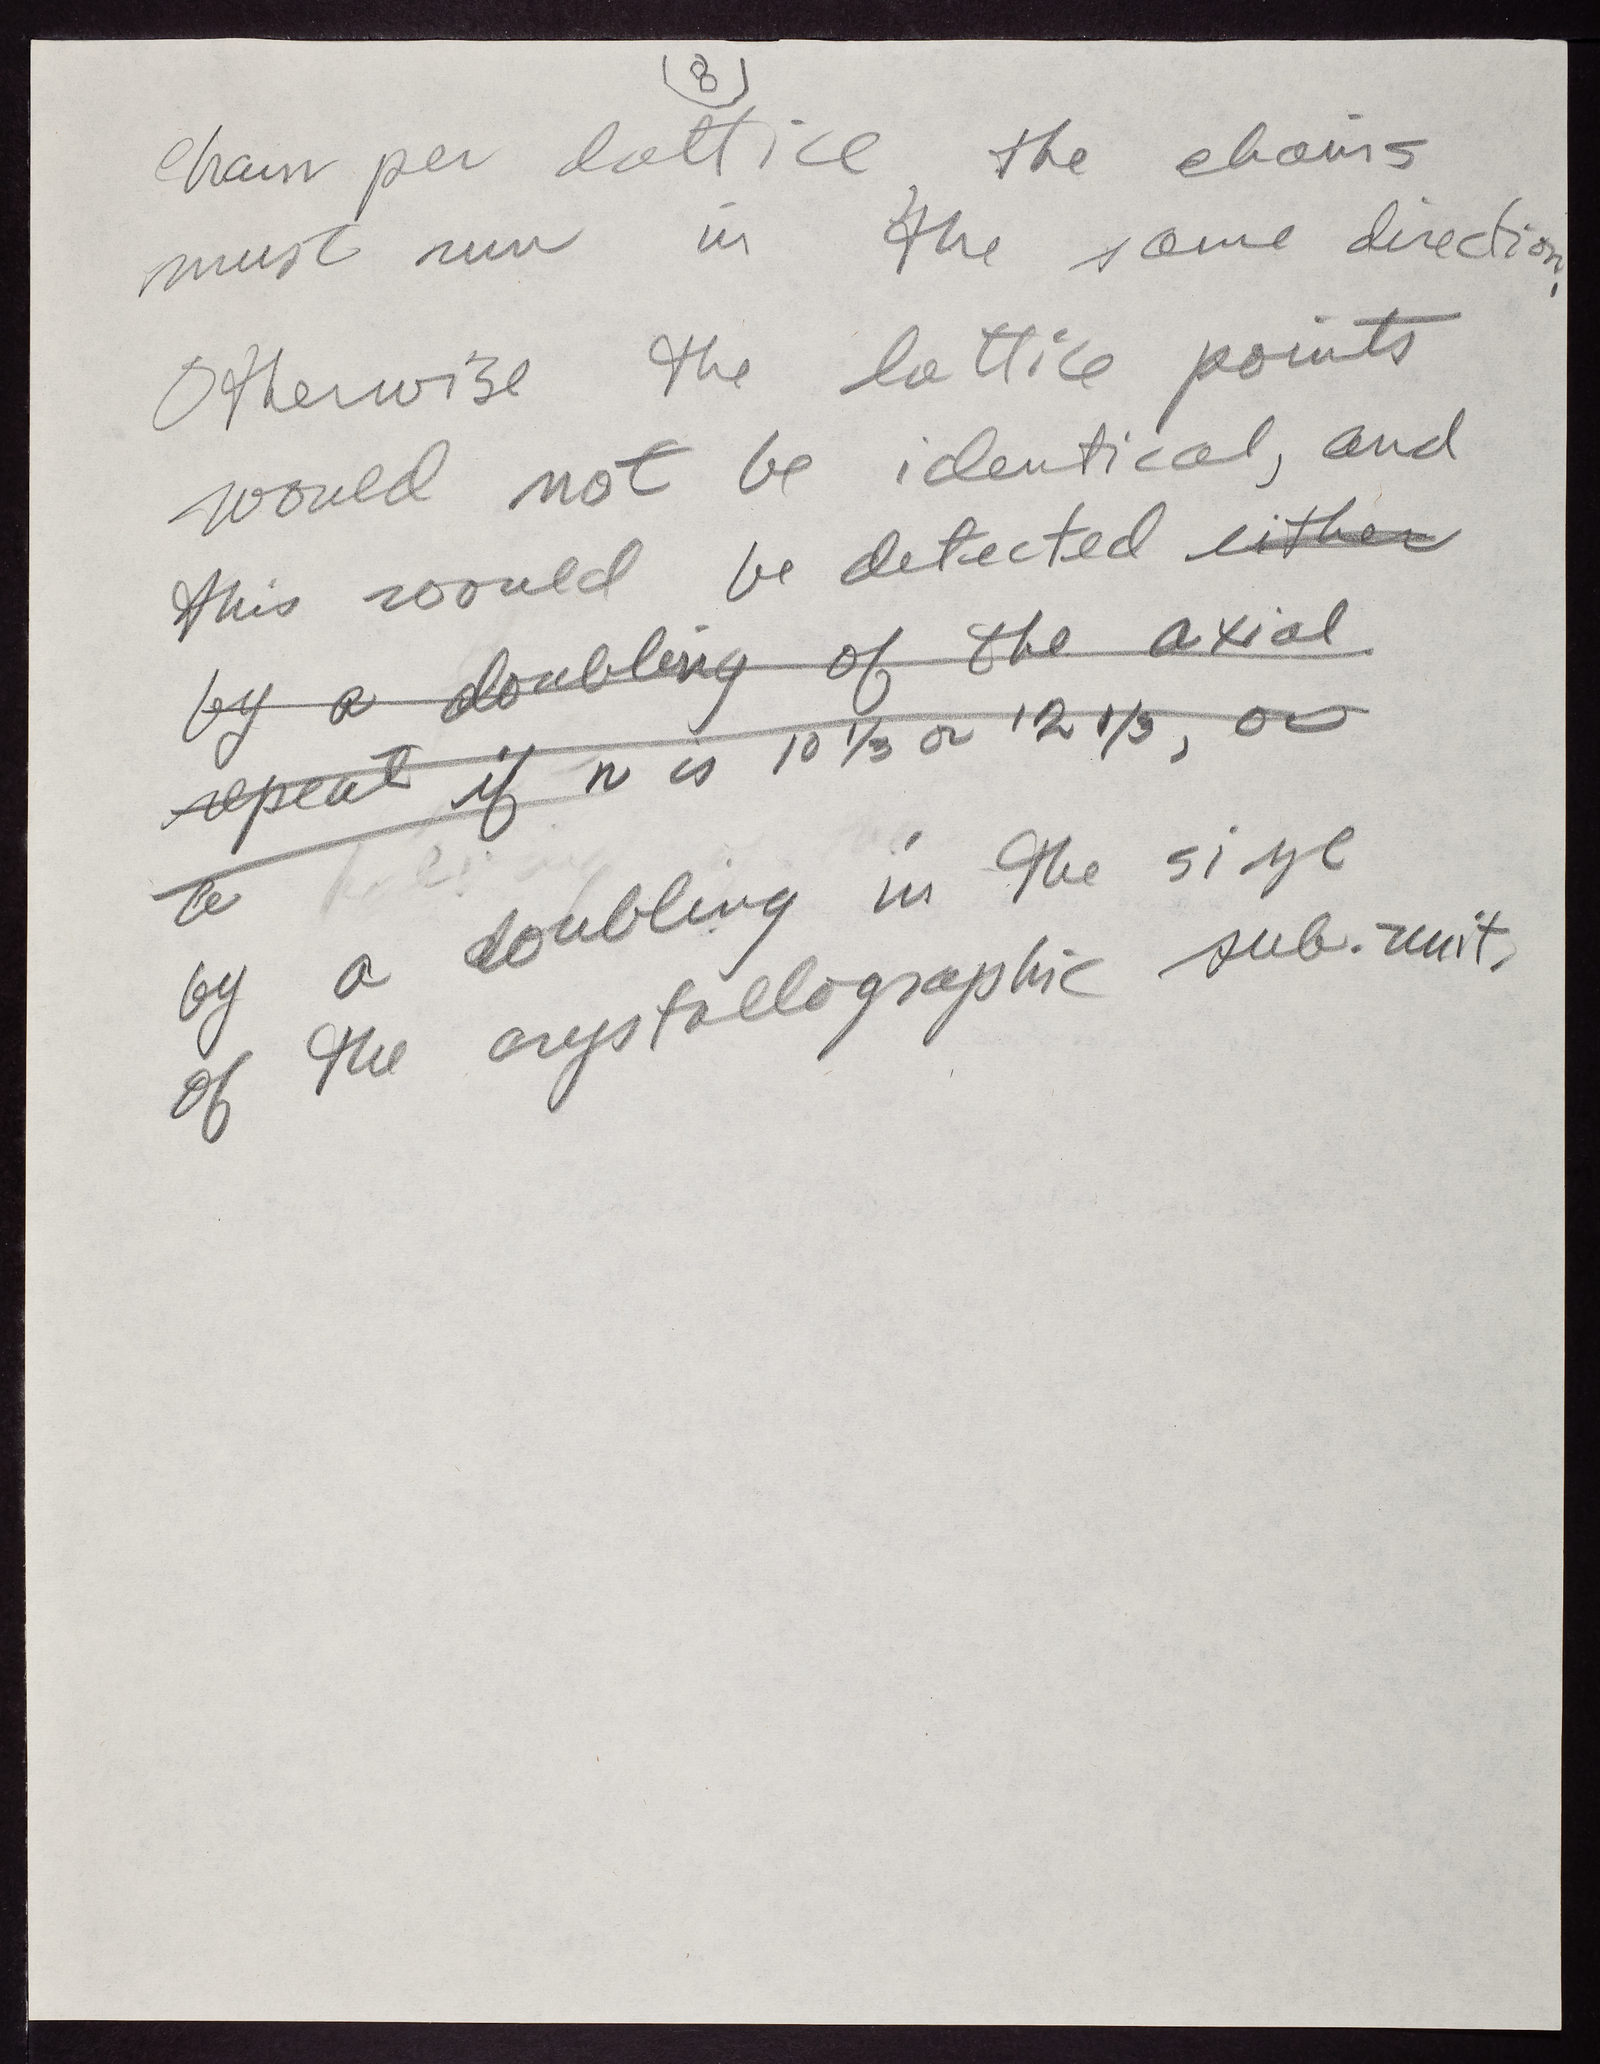 (8)
chain per lattice, the chains
must run in the same direction.
Otherwise the lattice points
would not be identical, and
this would be detected either
by a doubling of the axial
repeat if n is 10 1/3 or 12 1/3, or
by a doubling in the size
of the crystallographic sub-unit.